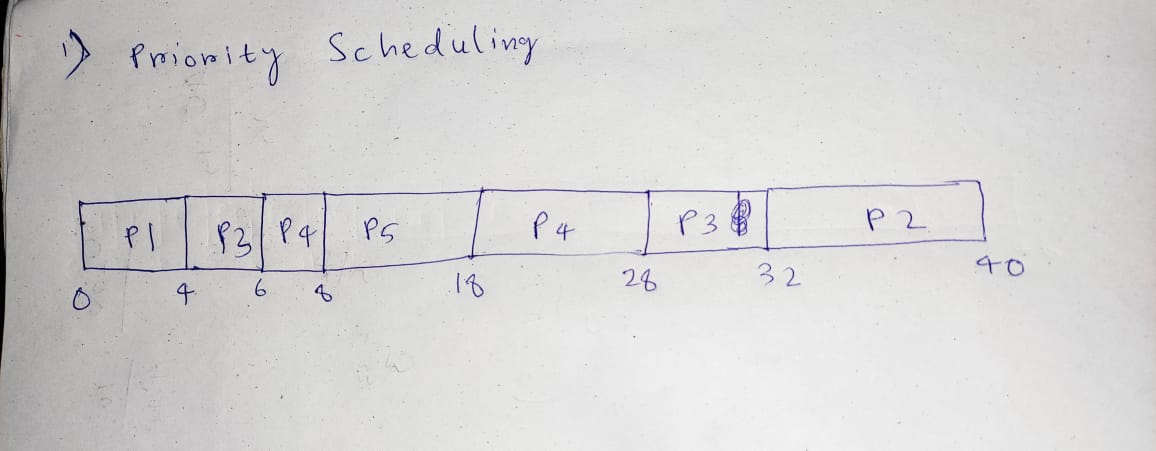 1) Priority Scheduling
P1 P3 P4 P5 P4 P3 P2
0 4 6 8 18 28 32 40